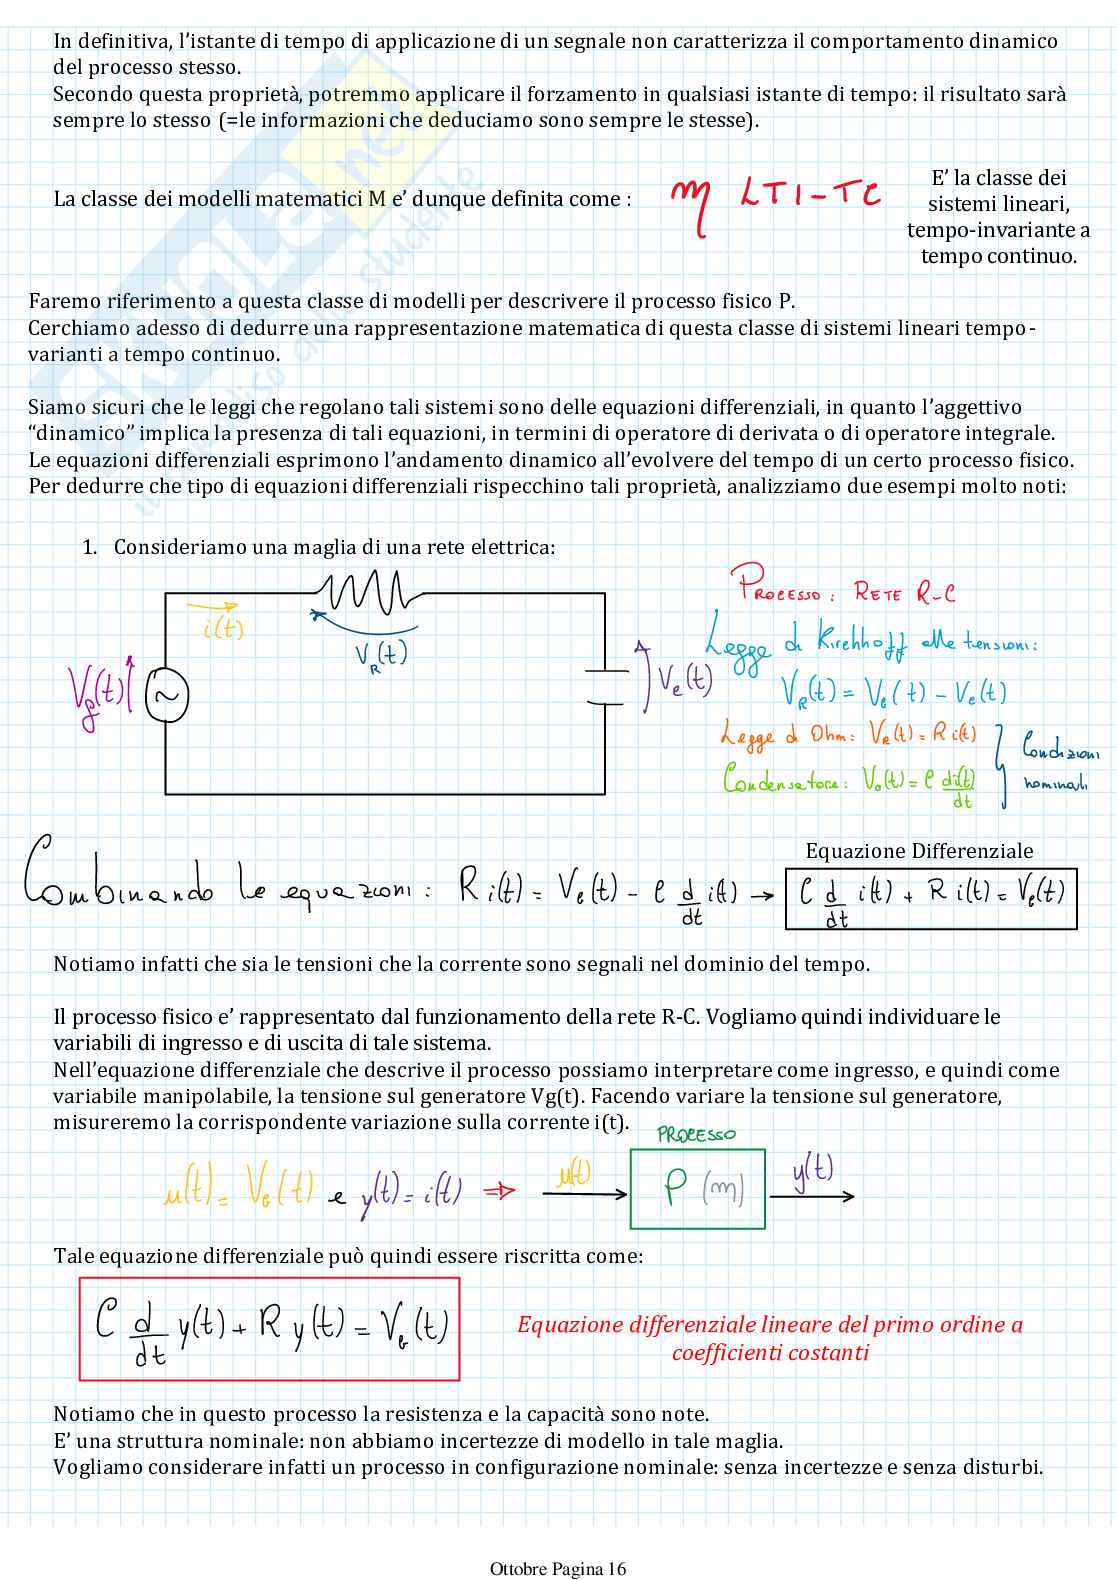 In definitiva, l’istante di tempo di applicazione di un segnale non caratterizza il comportamento dinamico
del processo stesso.
Secondo questa proprietà, potremmo applicare il forzamento in qualsiasi istante di tempo: il risultato sarà
sempre lo stesso (=le informazioni che deduciamo sono sempre le stesse).
La classe dei modelli matematici M e’ dunque definita come :
m LTI-TC
E’ la classe dei
sistemi lineari,
tempo-invariante a
tempo continuo.
Faremo riferimento a questa classe di modelli per descrivere il processo fisico P.
Cerchiamo adesso di dedurre una rappresentazione matematica di questa classe di sistemi lineari tempo-
varianti a tempo continuo.
Siamo sicuri che le leggi che regolano tali sistemi sono delle equazioni differenziali, in quanto l’aggettivo
“dinamico” implica la presenza di tali equazioni, in termini di operatore di derivata o di operatore integrale.
Le equazioni differenziali esprimono l’andamento dinamico all’evolvere del tempo di un certo processo fisico.
Per dedurre che tipo di equazioni differenziali rispecchino tali proprietà, analizziamo due esempi molto noti:
1. Consideriamo una maglia di una rete elettrica:
i(t)
V_R(t)
V_g(t)
V_c(t)
Processo: Rete R-C
Legge di Kirchhoff alle tensioni:
V_R(t) = V_G(t) - V_c(t)
Legge di Ohm: V_R(t) = R i(t)
Condensatore: V_c(t) = C di(t)/dt
Condizioni
nominali
Equazione Differenziale
Combinando le equazioni: R i(t) = V_G(t) - C d/dt i(t) → C d/dt i(t) + R i(t) = V_G(t)
Notiamo infatti che sia le tensioni che la corrente sono segnali nel dominio del tempo.
Il processo fisico e’ rappresentato dal funzionamento della rete R-C. Vogliamo quindi individuare le
variabili di ingresso e di uscita di tale sistema.
Nell’equazione differenziale che descrive il processo possiamo interpretare come ingresso, e quindi come
variabile manipolabile, la tensione sul generatore Vg(t). Facendo variare la tensione sul generatore,
misureremo la corrispondente variazione sulla corrente i(t).
PROCESSO
u(t) = V_G(t) e y(t) = i(t) ⇒ u(t) P (m) y(t)
Tale equazione differenziale può quindi essere riscritta come:
C d/dt y(t) + R y(t) = V_G(t)
Equazione differenziale lineare del primo ordine a
coefficienti costanti
Notiamo che in questo processo la resistenza e la capacità sono note.
E’ una struttura nominale: non abbiamo incertezze di modello in tale maglia.
Vogliamo considerare infatti un processo in configurazione nominale: senza incertezze e senza disturbi.
Ottobre Pagina 16